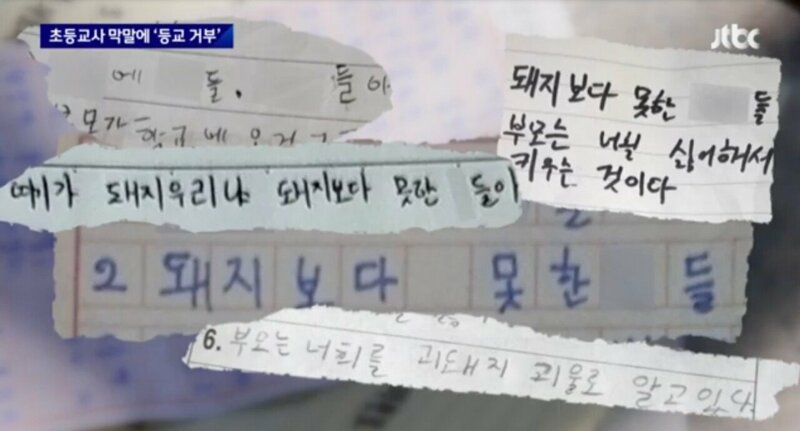 초등교사 막말에 '등교 거부'
jtbc
에 들. 들아
부모가 학교에
돼지보다 못한 들
부모는 너흴 싫어해서
키우는 것이다
여기가 돼지우리냐 돼지보다 못한 들아
2 돼지보다 못한 들
6. 부모는 너희를 괴돼지 괴물로 알고있다